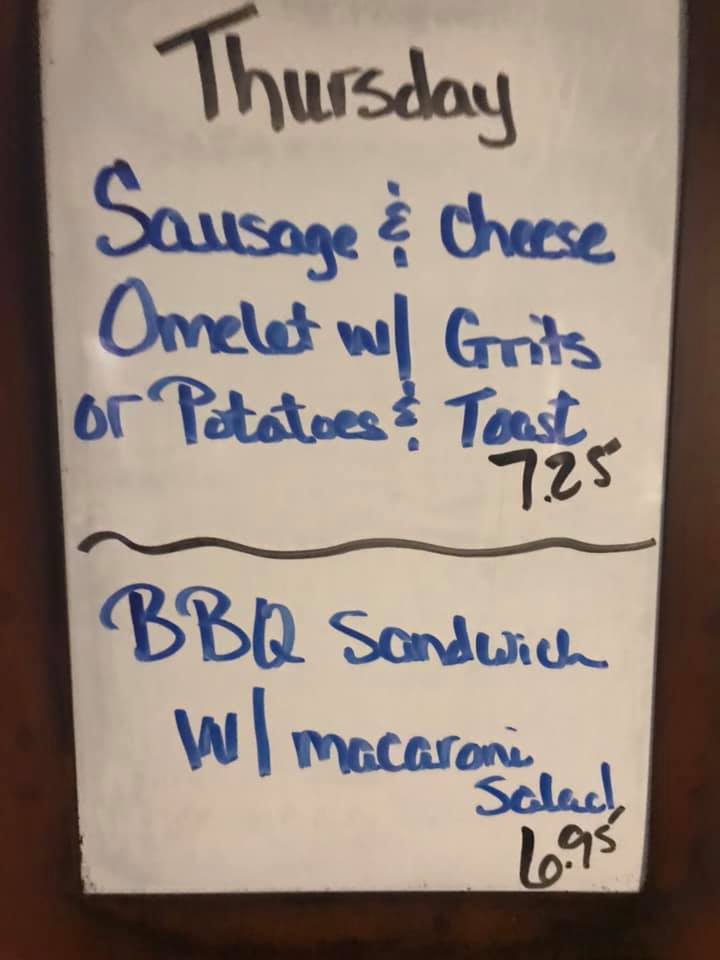 Thursday
Sausage & Cheese
Omelet w/ Grits
or Potatoes & Toast
7.25
BBQ Sandwich
W/ macaroni
Salad
6.95